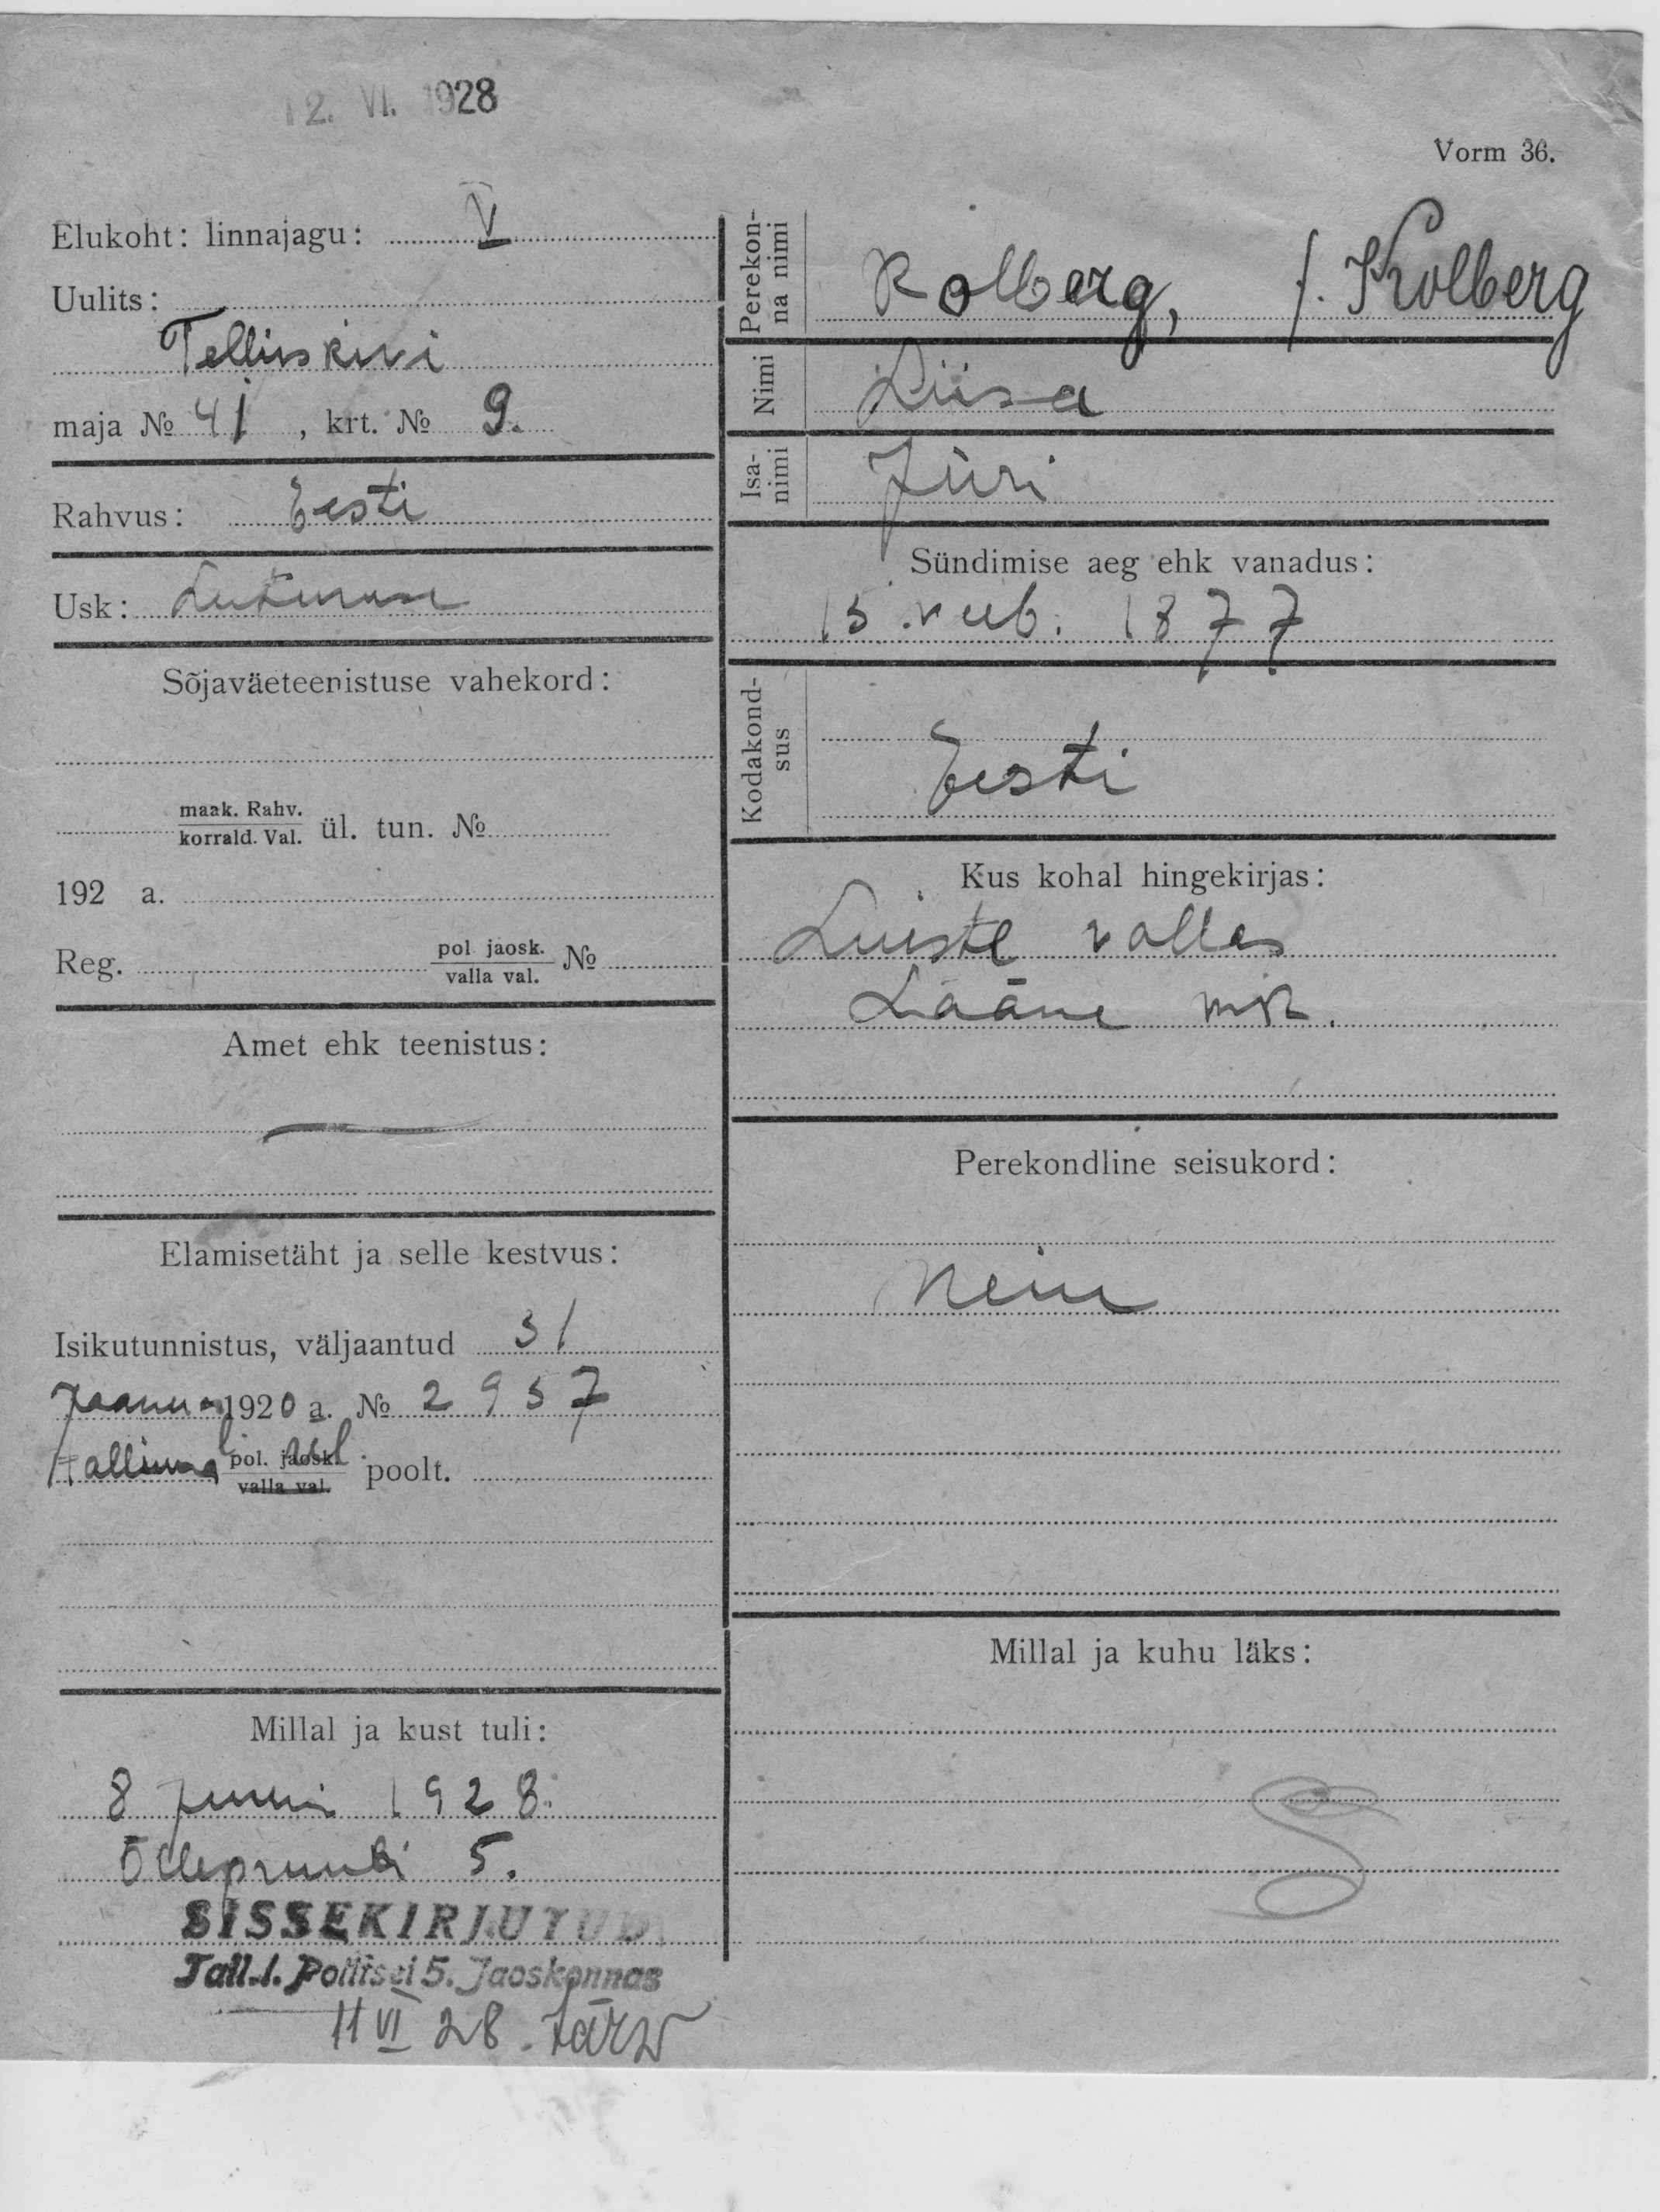 12. VI. 1928
Vorm 36.
Elukoht: linnajagu: V
Uulits:
Telliskivi
maja № 41, krt. № 9.
Rahvus: Eesti
Usk: Luteruse
Sõjaväeteenistuse vahekord:
maak. Rahv.
korrald. Val. ül. tun. №
192 a.
Reg. pol. jaosk. №
valla val.
Amet ehk teenistus:
Elamisetäht ja selle kestvus:
Isikutunnistus, väljaantud 31
Jaanuar 1920 a. № 2957
Tallinna pol. jaosk. poolt.
valla val.
Millal ja kust tuli:
8 Juuni 1928.
Õllepruuli 5.
SISSEKIRJUTUD
Tall.l. Politsei 5. Jaoskonnas
11 VI 28. Järw
Perekon-
na nimi
Kolberg, /. Kolberg
Nimi Liisa
Isa-
nimi Jüri
Sündimise aeg ehk vanadus:
15. veeb. 1877
Kodakond-
sus
Eesti
Kus kohal hingekirjas:
Luiste vallas
Lääne mk.
Perekondline seisukord:
Neiu
Millal ja kuhu läks: